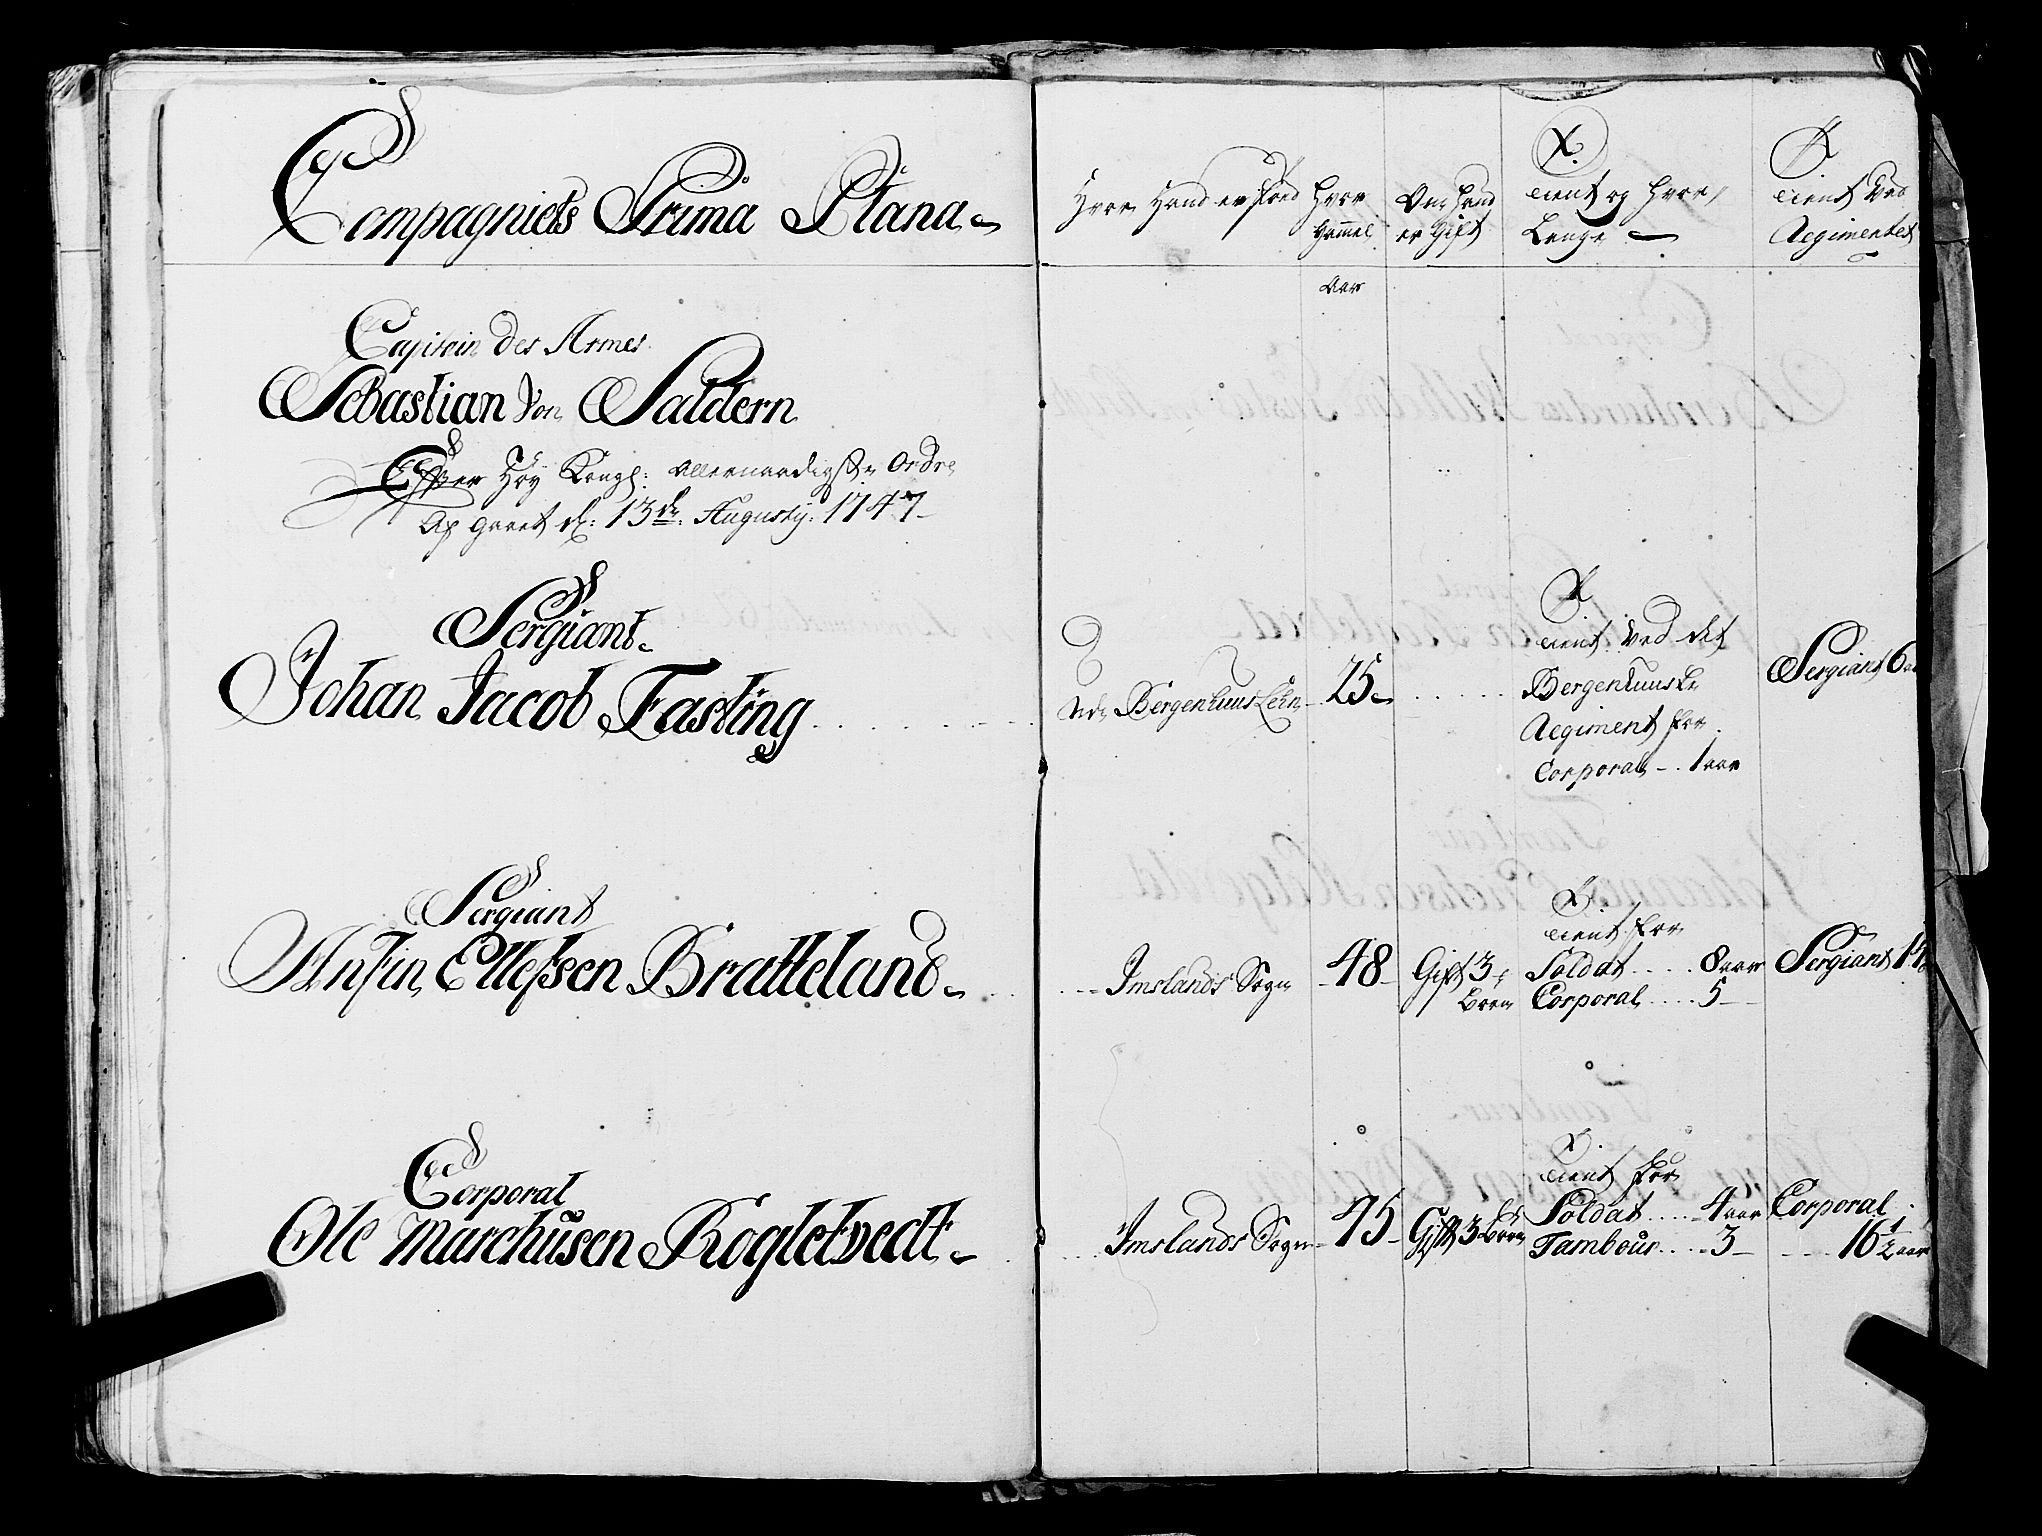 Compagniets Prima Plana
Hvor Hand er fød
Hvor
Gammel
Om Hand
er Gift
Tient og Hvor
Lenge
Tient ved
Regimentet
Aar
Capitain Des Armes
Sebastian Von Saldern
Efter Høy Kongl: Allernaadigste Ordre
Af gaaet d: 13de Augusty: 1747
Sergiant
Johan Jacob Fasting
Udi Bergenhuus Lehn
25
Tient Ved det
Bergenhuuske
Regiment for
Corporal 1 aar
Sergiant 6
Sergiant
Anfin Ellefsen Bratteland
Imslands Sogn
48
Gift 3
Børn
Tient for
Soldat 8 aar
Corporal 5
Sergiant
Corporal
Ole Marchusen Rogletvedt
Imslands Sogn
45
Gift 3 Børn
Tient for
Soldat 4 aar
Tambour 3
Corporal
16 1/2 aar